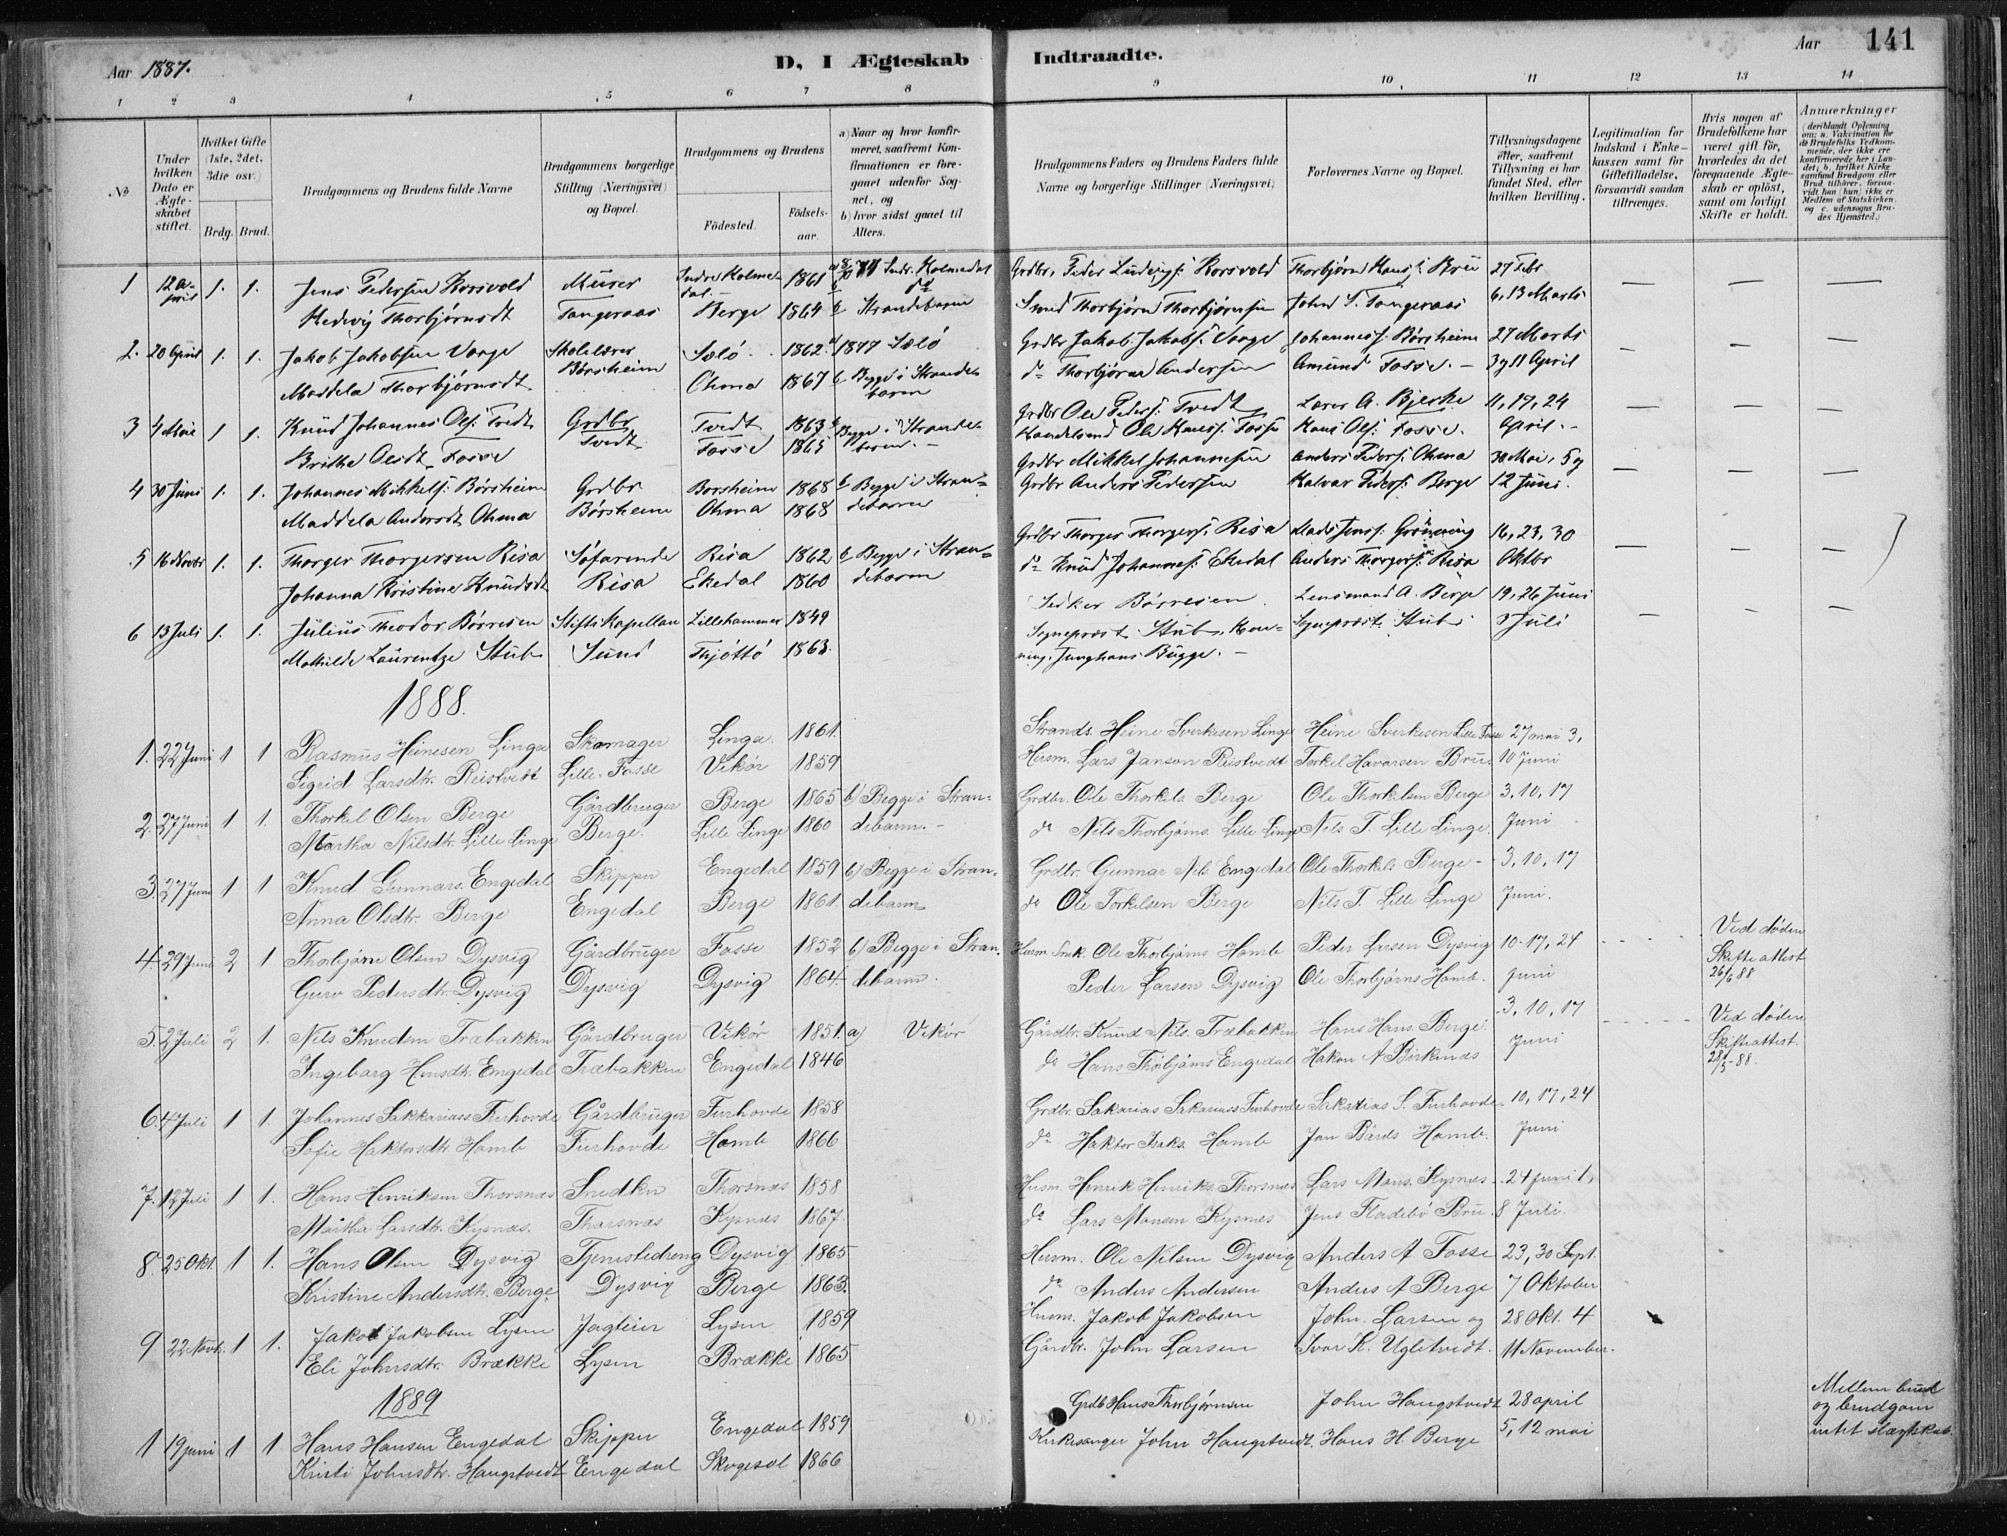 Aar 1887.
D, I Ægteskab Indtraadte.
Aar 141
1 2 3 4 5 6 7 8 9 10 11 12 13 14
No
Under hvilken Dato er Ægteskabet stiftet.
Hvilket Gifte (1ste, 2det, 3die osv.)
Brdg. Brud.
Brudgommens og Brudens fulde Navne
Brudgommens borgerlige Stilling (Næringsvei) og Bopæl.
Brudgommens og Brudens
Fødested.
Fødsels-aar.
a) Naar og hvor konfirmeret, saafremt Konfirmationen er foregaaet udenfor Sognet, og
b) hvor sidst gaaet til Alters.
Brudgommens Faders og Brudens Faders fulde Navne og borgerlige Stillinger (Næringsvei)
Forlovernes Navne og Bopæl.
Tillysningsdagene eller, saafremt Tillysning ei har fundet Sted, efter hvilken Bevilling.
Legitimation for Indskud i Enkekassen samt for Giftetilladelse, forsaavidt saadan tiltrænges.
Hvis nogen af Brudefolkene har været gift før, hvorledes da det foregaaende Ægteskab er opløst, samt om lovligt Skifte er holdt.
Anmærkninger (deriblandt Oplysning om: a. Vakcination for de Brudefolks Vedkommende, der ikke ere konfirmerede her i Landet; b. hvilket Kirkesamfund Brudgom eller Brud tilhører, forsaavidt han (hun) ikke er Medlem af Statskirken, og c. udensogns Brudes Hjemsted.)
1 12 April 1. 1. Jens Pedersen Korsvold Murer Indre Holmedal 1861 77 Indr. Holmedal Grdbr. Peder Ludvigs: Korsvold Thorbjørn Hans: Bru 27 Febr
Hedevig Thorbjørnsdt Tangeraas Berge 1864 b Strandebarm Smed Thorbjørn Thorbjørnsen John S. Tangeraas 6, 13 Marts
2. 20 April 1. 1. Jakob Jakobsen Vaage Skolelærer Sælø 1862 1877 Sælø Grdbr Jakob Jakobs: Vaage Johannes: Børsheim 27 Marts
Maddela Thorbjørnsdt Børsheim Ohma 1867 b Begge i Strandebarm do Thorbjørn Andersen Amund Fosse. 3 og 11 April
3 4 Mai 1 1. Knud Johannes Ols: Tvedt Grdbr Tvedt 1863 b Begge i Strandebarm. Grdbr Ole Peders: Tvedt Lærer A. Bjerke 11, 17, 24
Brithe Olsdt Fosse Tvedt Fosse 1865 Handelsmd Ole Hans: Fosse Hans Ols: Fosse. April.
4 30 Juni 1. 1. Johannes Mikkels: Børsheim Grdbr Børsheim 1868 b Begge i Strandebarm Grdbr Mikkel Johannesen Anders Peders: Ohma 30 Mai, 5 og
Maddela Andersdt Ohma Børsheim Ohma 1868 Grdbr Anders Pedersen Halvar Peders: Berge 12 Juni.
5 16 Novbr 1. 1. Thorger Thorgersen Risa Søfarende Risa 1862 b Begge i Strandebarm Grdbr Thorger Thorgers: Risa Mads Jens: Grønning 16, 23, 30
Johanna Kristine Knudsdt Risa Ekedal 1860 do Knud Johannes: Ekedal Anders Thorgers: Risa Oktbr
6 13 Juli 1. 1. Julius Theodor Børresen Stifts Kapellan Lillehammer 1849 Børresen Lensmand A. Berge 19, 26 Juni
Mathilde Laurentze Stub Sund Thjøttø 1863. Sogneprest Stub, Henning Junghans Bugge. Sogneprest Stub 3 Juli
1888.
1. 22 Juni 1 1 Rasmus Heinesen Linga Skomager Linga 1861. Strands. Heine Sverkesen Linge Heine Sverkesen Lille Fosse 27 mai 3,
Sigrid Larsdtr. Reistvedt Lille-Fosse Vikør 1859 Husm. Lars Janson Reistvedt Torkel Havarsen Bru. 10 Juni
2. 27 Juni 1 1. Thorkel Olsen Berge Gårdbruger Berge 1865 b) Begge i Strandebarm. Grdbr. Ole Thorkels. Berge Ole Thorkelsen Berge 3, 10, 17
Martha Nilsdtr. Lille Linge Berge. Lille Linge 1860 do Nils Thorbjørns. Lille Linge Nils T. Lille Linge. Juni
3. 27 Juni 1 1 Knud Gunnars. Engedal Skipper Engedal 1859 b) Begge i Strandebarm Grdbr. Gunnar Nils Engedal Ole Thorkels Berge 3, 10, 17
Anna Olsdtr. Berge Engedal Berge 1861. do Ole Torkelsen Berge Nils T. Lille Linge Juni.
4. 29 Juni 2 1 Thorbjørn Olsen Dysvig Gårdbruger Fosse 1852 b) Begge i Strandebarm. Husm. Ole Thorbjørns Hamb Peder Larsen Dysvig 10, 17, 24 Ved døden
Guro Pedersdtr. Dysvig Dysvig Dysvig 1864 Peder Larsen Dysvig Ole Thorbjørns Hamb. Juni Skifteattest 26/6 88
5. 2 Juli 2 1. Nils Knudsen Træbakken Gårdbruger Vikør 1851. a) Vikør Gårdbr. Knud Nils. Træbakken Hans Hans. Berge. 3, 10, 17 Ved døden
Ingeborg Hansdtr. Engedal Træbakken Engedal 1846 do Hans Thorbjørns Engedal Hakon A Birkenæs Juni Skifteattest 28/5-88.
6. 4 Juli 1 1. Johannes Sakkariass Furhovde Gårdbruger Furhovde 1858 Grdbr. Sakarias Sakariass Furhovde Sakarias S. Furhovde 10, 17, 24
Sofie Haktorsdtr Hamb Furhovde Hamb 1866 do Haktor Isaks. Hamb Jan Bårds Hamb. Juni
7. 12 Juli 1 1. Hans Henriksen Thorsnæs Snedker Thorsnæs 1858 Husm. Henrik Henriks. Thorsnæs Lars Mons. Kysnæs 24 Juni 1,
Martha Larsdtr. Kysnæs. Thorsnæs Kysnæs 1867. do Lars Monsen Kysnæs Jens Fladebø Bru 8 Juli
8. 25 Okt. 1 1. Hans Olsen Dysvig Tjenestedreng Dysvig 1865 Husm. Ole Nilsen Dysvig Anders A Fosse 23, 30 Sept.
Kristine Andersdtr. Berge. Dysvig Berge 1863. do Anders Andersen Anders A Berge 7 Oktober
9 22 Novb. 1 1. Jakob Jakobsen Lysen Jagteier Lysen 1859 Husm. Jakob Jakobsen John Larsen og 28 Okt. 4
Eli Johnsdtr. Brække Lysen Brække 1865 Gårdbr. John Larsen Ivar K. Ugletvedt. 11 November.
1889
1 19 juni 1 1. Hans Hansen Engedal Skipper Engedal 1859 Grdb Hans Thorbjørnsen John Haugstvedt 28 april Mellem brud og brudgom intet slægtskab.
Kristi Johnsdtr. Haugstvedt Engedal Skogesal 1866 Kirkesanger John Haugstvedt. Hans H. Berge 5, 12 mai